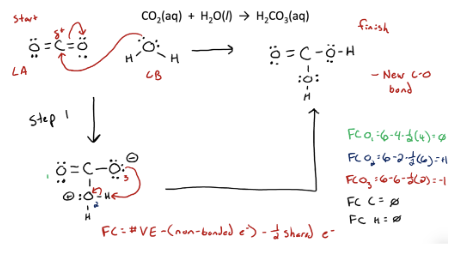 CO₂(aq) + H₂O(l) → H₂CO₃(aq)
start
finish
δ+
O=C=O
O
H H
LA
LB
O=C-O-H
O
H
- New C-O
bond
Step 1
O=C-O:
1
3
⊖
⊕ :O-H
2
H
FCO₁=6-4-½(4)=∅
FCO₂=6-2-½(6)=+1
FCO₃=6-6-½(2)=-1
FC C = ∅
FC H = ∅
FC=#VE-(non-bonded e⁻)-½ shared e⁻